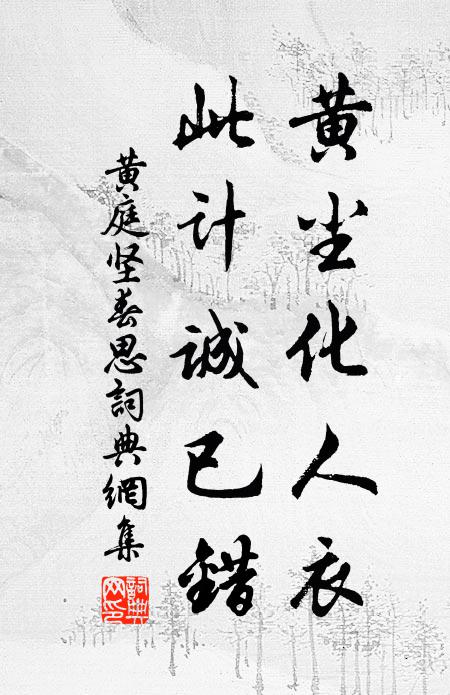 黄尘化人衣
此计诚已错
黄庭坚春思詞典網集
詞典网印